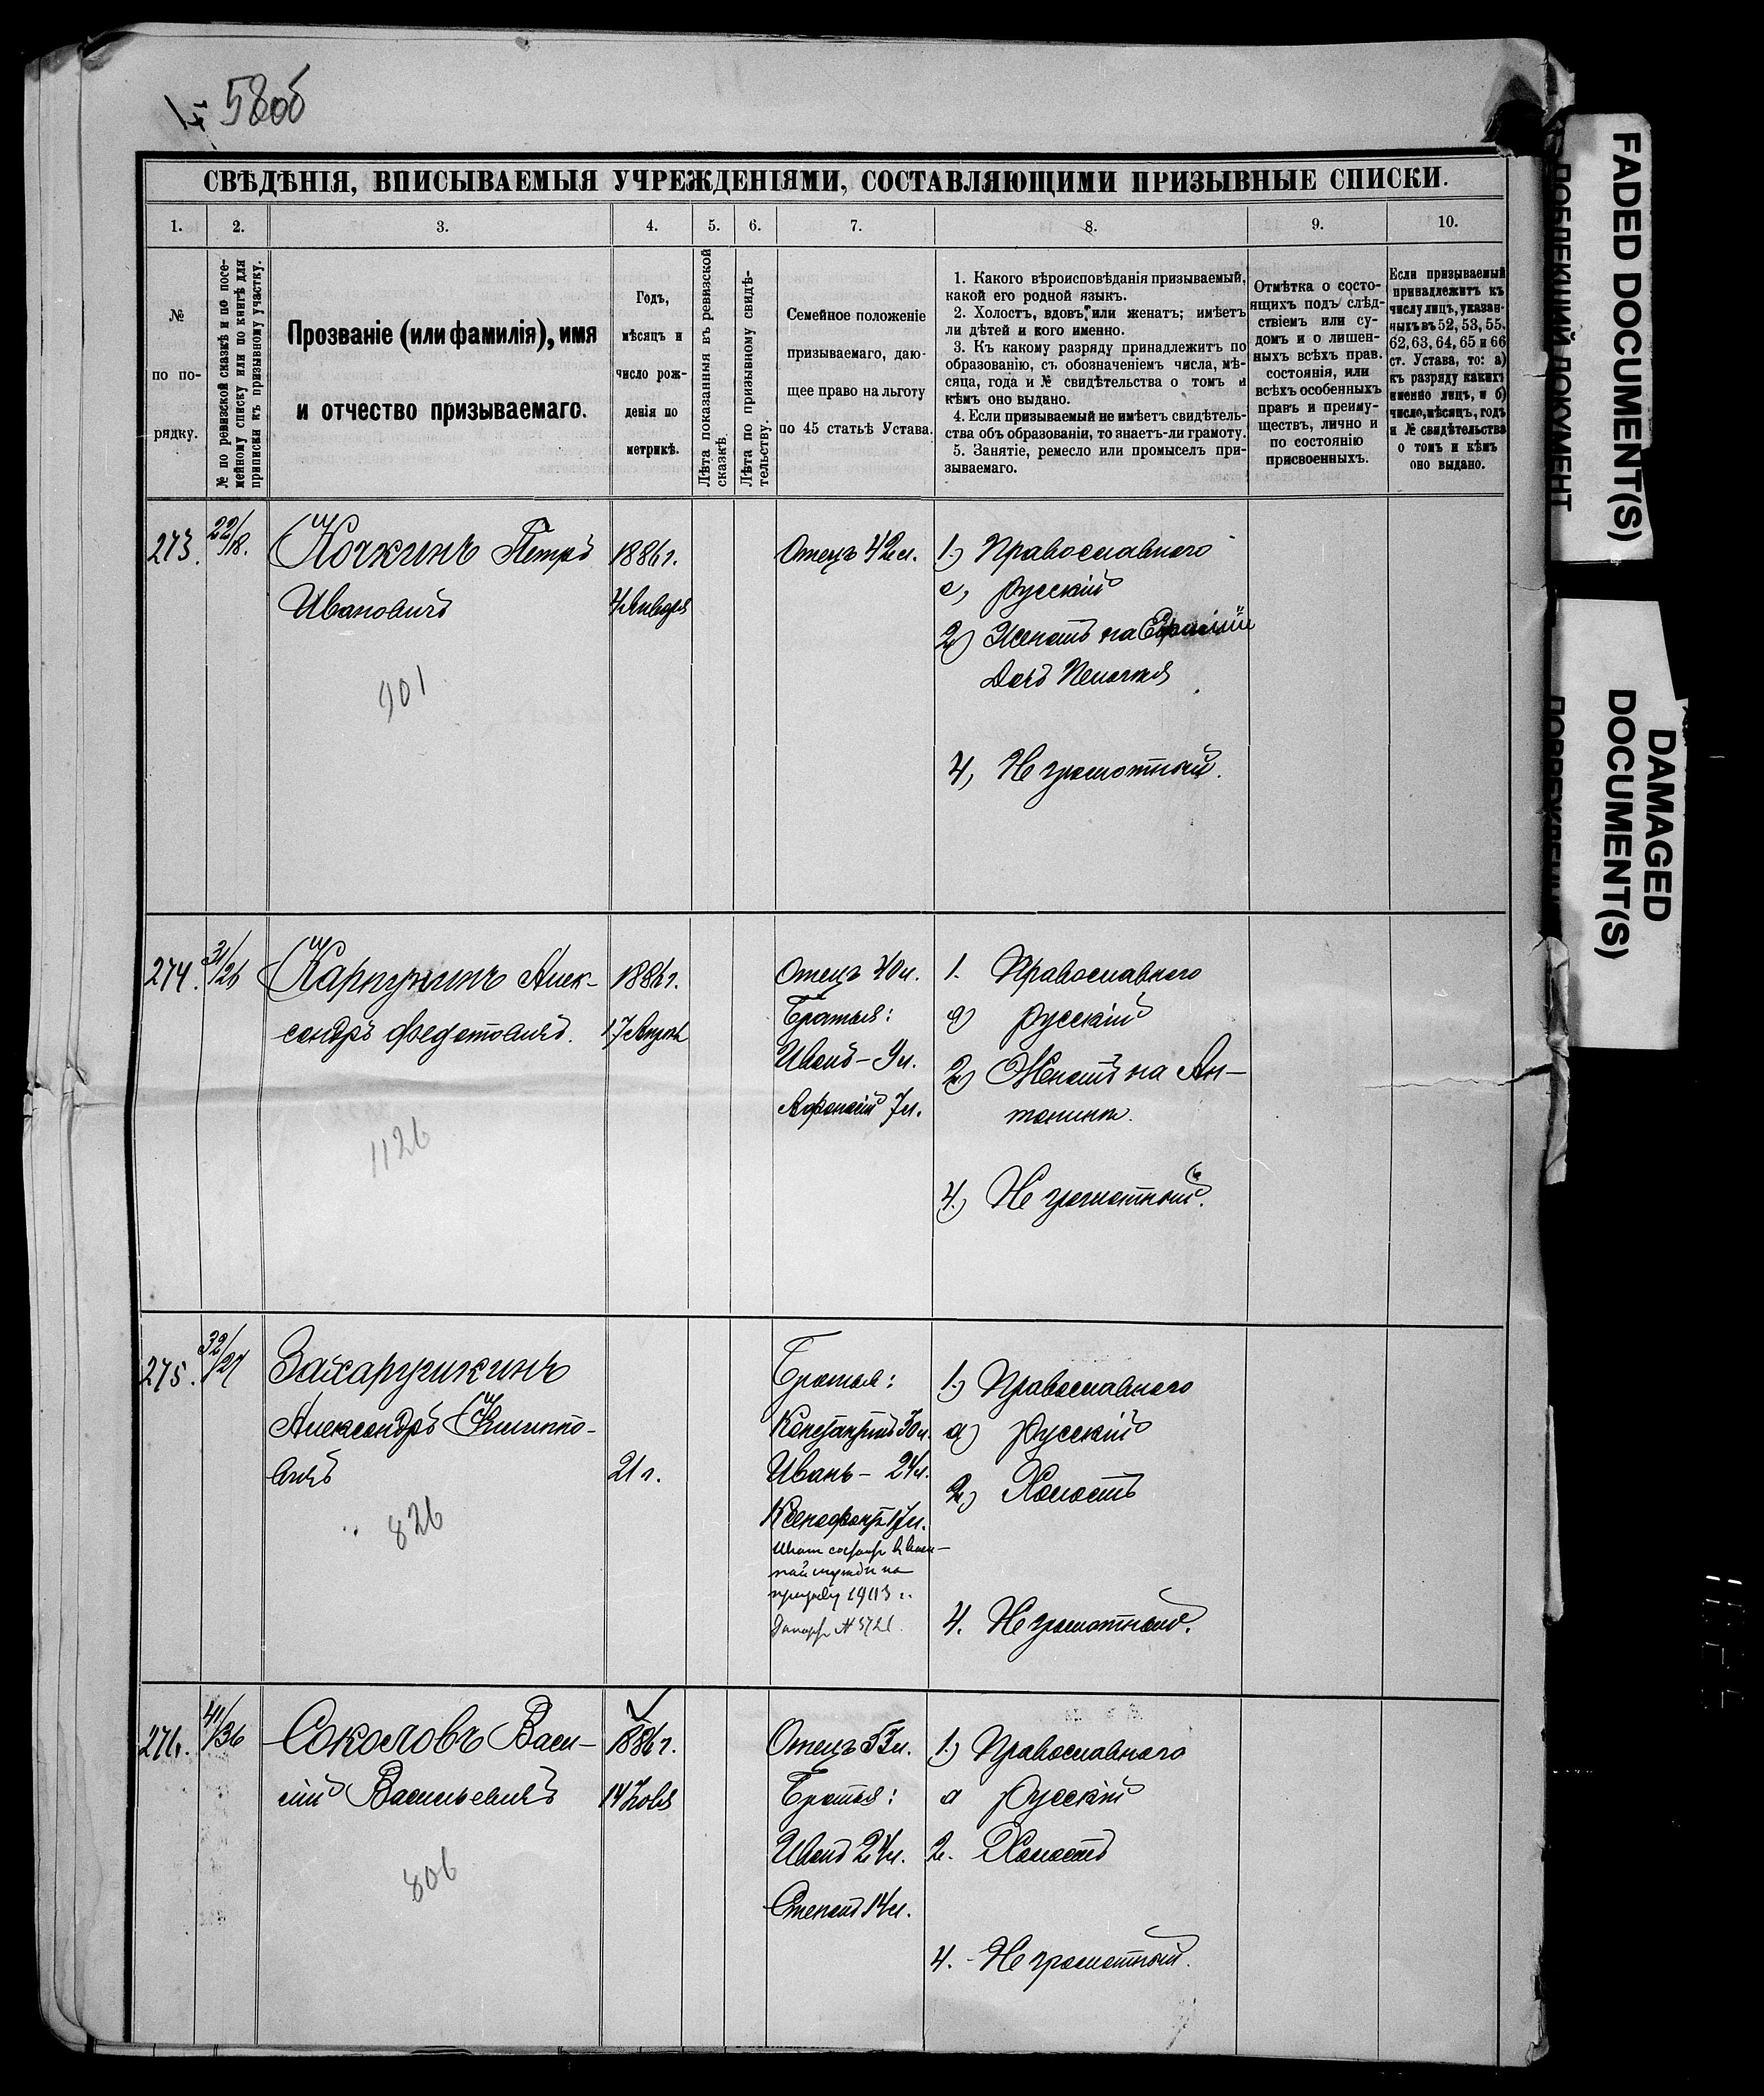 580б
СВѢДѢНІЯ, ВПИСЫВАЕМЫЯ УЧРЕЖДЕНІЯМИ, СОСТАВЛЯЮЩИМИ ПРИЗЫВНЫЕ СПИСКИ.
1. 2. 3. 4. 5. 6. 7. 8. 9. 10.
№
по по-
рядку.
№ по ревизской сказкѣ и по посе-
мейному списку или по книгѣ для
приписки къ призывному участку.
Прозваніе (или фамилія), имя
и отчество призываемаго.
Годъ,
мѣсяцъ и
число рож-
денія по
метрикѣ.
Лѣта показанныя въ ревизской
сказкѣ.
Лѣта по призывному свидѣ-
тельству.
Семейное положеніе
призываемаго, даю-
щее право на льготу
по 45 статьѣ Устава.
1. Какого вѣроисповѣданія призываемый,
какой его родной языкъ.
2. Холостъ, вдовъ, или женатъ; имѣетъ
ли дѣтей и кого именно.
3. Къ какому разряду принадлежитъ по
образованію, съ обозначеніемъ числа, мѣ-
сяца, года и № свидѣтельства о томъ и
кѣмъ оно выдано.
4. Если призываемый не имѣетъ свидѣтель-
ства объ образованіи, то знаетъ-ли грамоту.
5. Занятіе, ремесло или промыселъ при-
зываемаго.
Отмѣтка о состо-
ящихъ подъ слѣд-
ствіемъ или су-
домъ и о лишен-
ныхъ всѣхъ прав.
состоянія, или
всѣхъ особенныхъ
правъ и преиму-
ществъ, лично и
по состоянію
присвоенныхъ.
Если призываемый
принадлежитъ къ
числу лицъ, указан-
ныхъ въ 52, 53, 55,
62, 63, 64, 65 и 66
ст. Устава, то: а)
къ разряду какихъ
именно лицъ, и б)
число, мѣсяцъ, годъ
и № свидѣтельства
о томъ и кѣмъ
оно выдано.
273. 22/18. Кочкинъ Петръ
Ивановичъ
901
1886 г.
4 Января
Отецъ 42 л.
1.) Православнаго
а, русскій
2) Женатъ на
Дочь Пелагея
4, Не грамотный.
274. 31/26 Карпухинъ Алек-
сандръ Федотовичъ.
1126
1886 г.
17 Апрѣля
Отецъ 40 л.
Братья:
Иванъ - 9 л.
Афанасій 7 л.
1. Православнаго
а) русскій
2) Женатъ на Ан-
тонинѣ.
4.) Не грамотный.
275. 32/27 Захарушкинъ
Александръ Филиппо-
вичъ
826
21 г.
Братья:
Константинъ 30 л.
Иванъ - 24 л.
Ксенофонтъ 17 л.
Иванъ состоитъ въ воен-
ной службѣ по
призыву 1903 г.
1.) Православнаго
а) русскій
2) Холостъ
4. Не грамотный.
276. 41/36 Соколовъ Васи-
лій Васильевичъ
806
1886 г.
14 Ноября
Отецъ 53 л.
Братья:
Иванъ 24 л.
Степанъ 14 л.
1.) Православнаго
а русскій
2. Холостъ
4. Не грамотный.
FADED DOCUMENT(S)
DAMAGED
DOCUMENT(S)